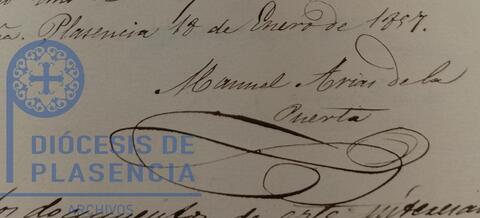 Plasencia 18 de Enero de 1857.
Manuel Arias de la
Puerta
DIÓCESIS DE
PLASENCIA
ARCHIVOS
los documentos de esta